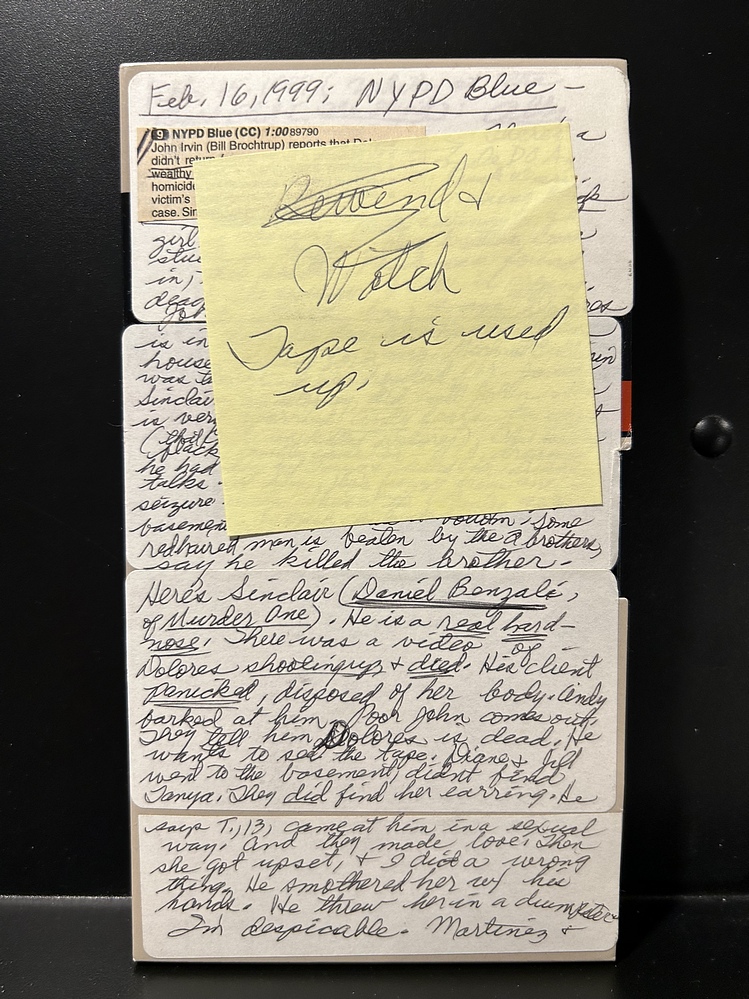 Feb. 16, 1999; NYPD Blue -
9 NYPD Blue (CC) 1:00 89790
John Irvin (Bill Brochtrup) reports that
didn't
wealthy
homicide
victim's
case.
a
girl
in,
Rewind &
Watch
Tape is used
up.
is in
house
was
Sinclair
is
he had
talks
seizure
basement some
redhaired man is beaten by the 2 brothers,
say he killed the brother-
Here's Sinclair (Daniel Benzali,
of Murder One). He is a real hard-
nose. There was a video of
Dolores shooting up & died. His client
panicked, disposed of her body. Andy
barked at him. Poor John comes out.
They tell him Dolores is dead. He
wants to see the tape. Diane & Jill
went to the basement, didnt find
Tanya. They did find her earring. He
says T., 13, came at him in a sexual
way. And they made love. Then
she got upset, & I did a wrong
thing. He smothered her w/ his
hands. He threw her in a dumpster-
I'm despicable. Martinez &